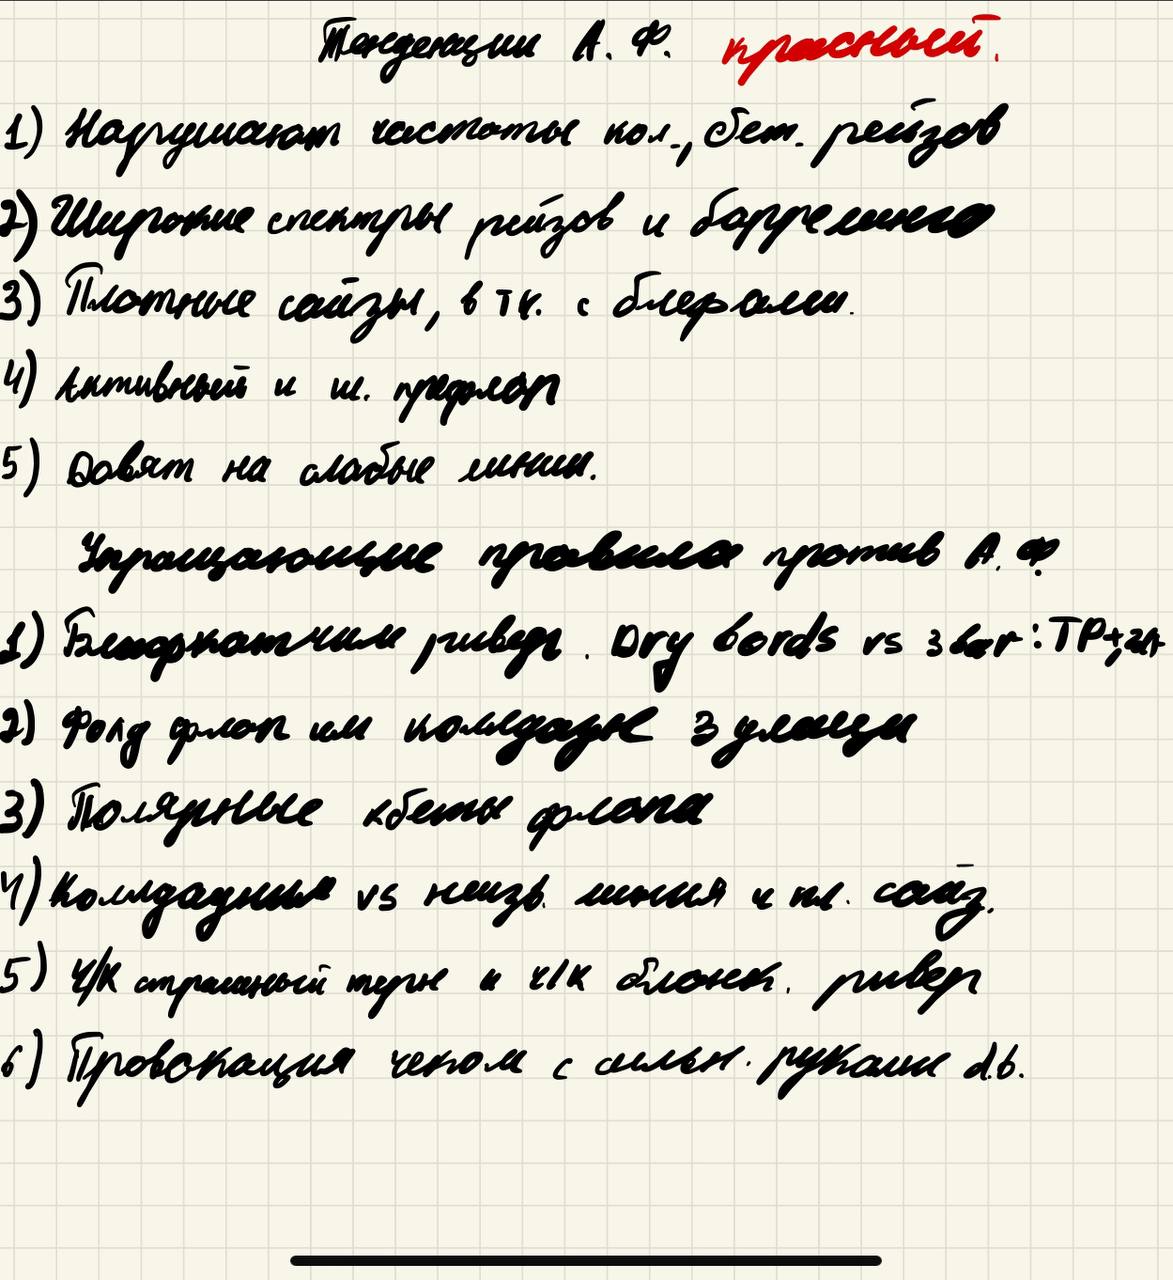 Тенденции А. Ф. красный.
1) Нарушают частоты кол., бет. рейзов
2) Широкие спектры рейзов и барреллинга
3) Плотные сайзы, в тч. с блефами.
4) Активный и ш. префлоп
5) Давят на слабые линии.
Упрощающие правила против А. Ф.
1) Блефкатчим ривер. Dry bords vs 3 bar: TP+,
2) Фолд флоп или коллдаун 3 улицы
3) Полярные кбеты флопа
4) Коллдауним vs неизв. линия и пл. сайз.
5) Ч/К страшный терн и ч/к блонк. ривер
6) Провокация чеком с сильн. руками d.b.